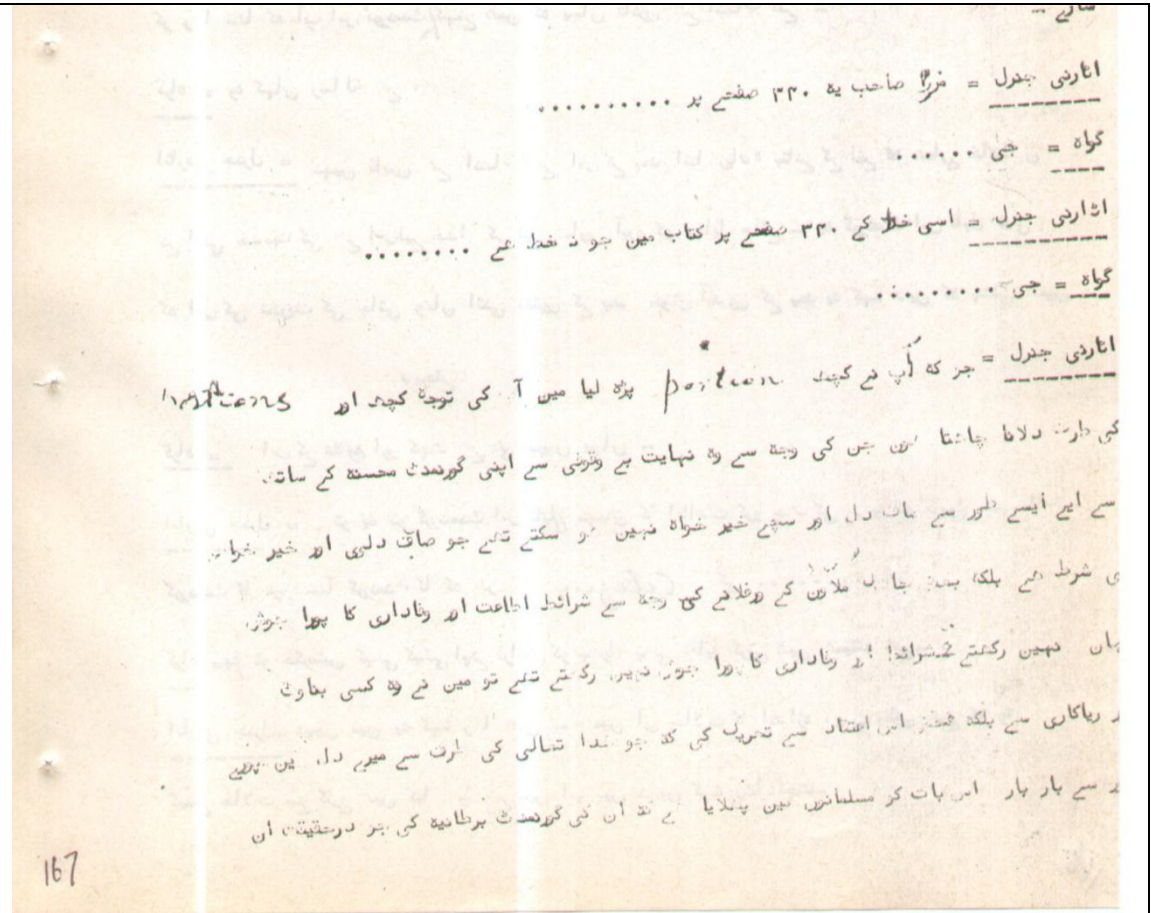 اٹارنی جنرل = مرزا صاحب یہ ۳۴۰ صفحے پر ..........
گواہ = جی ......
اٹارنی جنرل = اسی خط کے ۳۴۰ صفحے پر کتاب میں جو نہ خط ہے ........
گواہ = جی ........
اٹارنی جنرل = جو کہ آپ نے کچھ portion پڑہ لیا میں آ کی توجہ کچھ اور
کی طرف دلانا چاہتا ہوں جن کی وجہ سے وہ نہایت بے وقوفی سے اپنی گورنمنٹ محسنہ کے ساتھ
سے ایسے طور سے صاف دل اور سچے خیر خواہ نہیں ہو سکتے تھے جو صاف دلی اور خیر خواہی
ی شرط ہے بلکہ بعض جاہل ملاؤں کے ورغلانے کی وجہ سے شرائط اطاعت اور وفاداری کا پورا جوش
نہیں رکھتے وفاداری کا پورا جوش نہیں رکھتے تھے تو میں نے وہ کسی بناوٹ
ریاکاری سے بلکہ محض اس اعتقاد سے تحریک کی کہ جو خدا تعالی کی طرف سے میرے دل میں
سے بار بار اس بات کو مسلمانوں میں پھیلایا ہے کہ ان کی گورنمنٹ برطانیہ کی جو درحقیقت ان
167